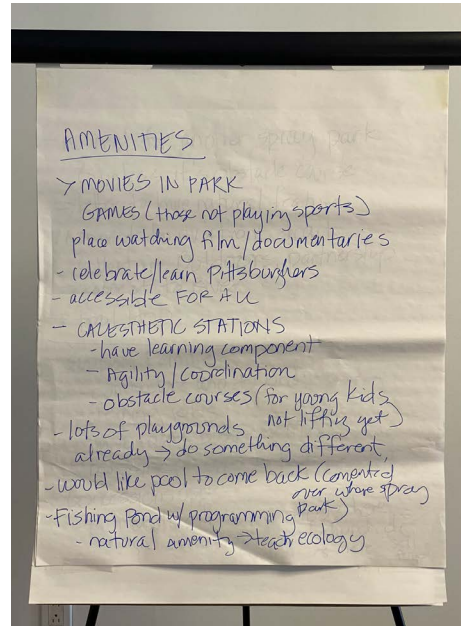 AMENITIES
> MOVIES IN PARK
GAMES (those not playing sports)
place watching film/documentaries
- celebrate/learn Pittsburghers
- accessible FOR ALL
- CALESTHETIC STATIONS
- have learning component
- Agility/coordination
- obstacle courses (for young kids
not lifting yet)
- lots of playgrounds
already → do something different
- would like pool to come back (comented
over where spray
park)
- Fishing Pond w/ programming
- natural amenity → teach ecology